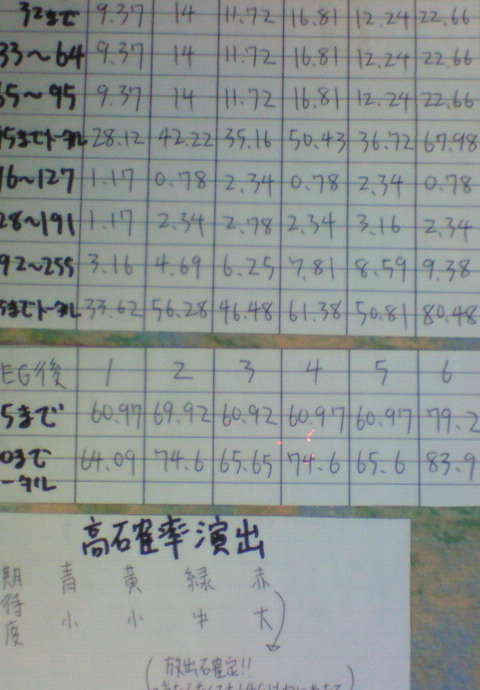 32まで 9.37 14 11.72 16.81 12.24 22.66
33～64 9.37 14 11.72 16.81 12.24 22.66
65～95 9.37 14 11.72 16.81 12.24 22.66
95までトータル 28.12 42.22 35.16 50.43 36.72 67.98
96～127 1.17 0.78 2.34 0.78 2.34 0.78
28～191 1.17 2.34 2.78 2.34 3.16 2.34
92～255 3.16 4.69 6.25 7.81 8.59 9.38
5までトータル 33.62 56.28 46.48 61.38 50.81 80.48
EG後 1 2 3 4 5 6
5まで 60.97 69.92 60.92 60.97 60.97 79.2
0まで 64.09 74.6 65.65 74.6 65.6 83.9
ータル
高確率演出
期待度 青 黄 緑 赤
小 小 中 大
放出確定!!